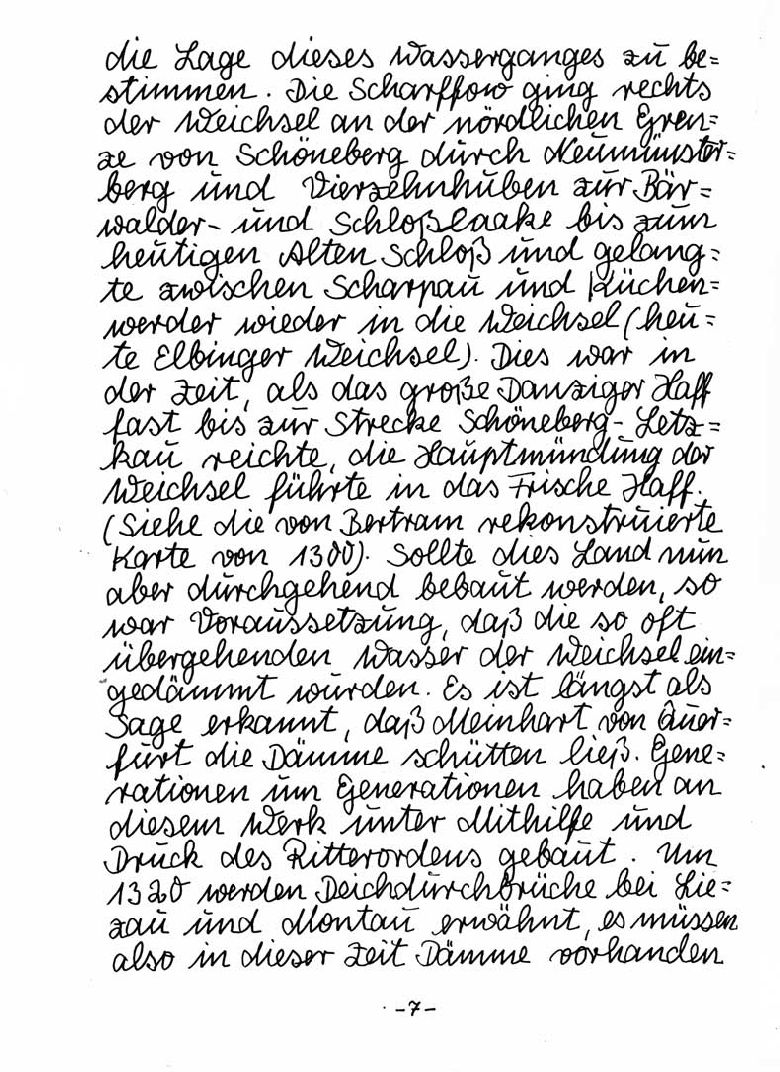 die Lage dieses Wasserganges zu be=
stimmen. Die Scharffow ging rechts
der Weichsel an der nördlichen Gren=
ze von Schöneberg durch Neumünster=
berg und Vierzehnhuben zur Bär=
walder- und Schloßlaake bis zum
heutigen Alten Schloß und gelang=
te zwischen Scharpau und Küchen=
werder wieder in die Weichsel (heu=
te Elbinger Weichsel). Dies war in
der Zeit, als das große Danziger Haff
fast bis zur Strecke Schöneberg-Letz=
kau reichte, die Hauptmündung der
Weichsel führte in das Frische Haff.
(Siehe die von Bertram rekonstruierte
Karte von 1300). Sollte dies Land nun
aber durchgehend bebaut werden, so
war Voraussetzung, daß die so oft
übergehenden Wasser der Weichsel ein=
gedämmt wurden. Es ist längst als
Sage erkannt, daß Meinhart von Quer=
furt die Dämme schütten ließ. Gene=
rationen um Generationen haben an
diesem Werk unter Mithilfe und
Druck des Ritterordens gebaut. Um
1320 werden Deichdurchbrüche bei Lie=
zau und Montau erwähnt, es müssen
also in dieser Zeit Dämme vorhanden
-7-